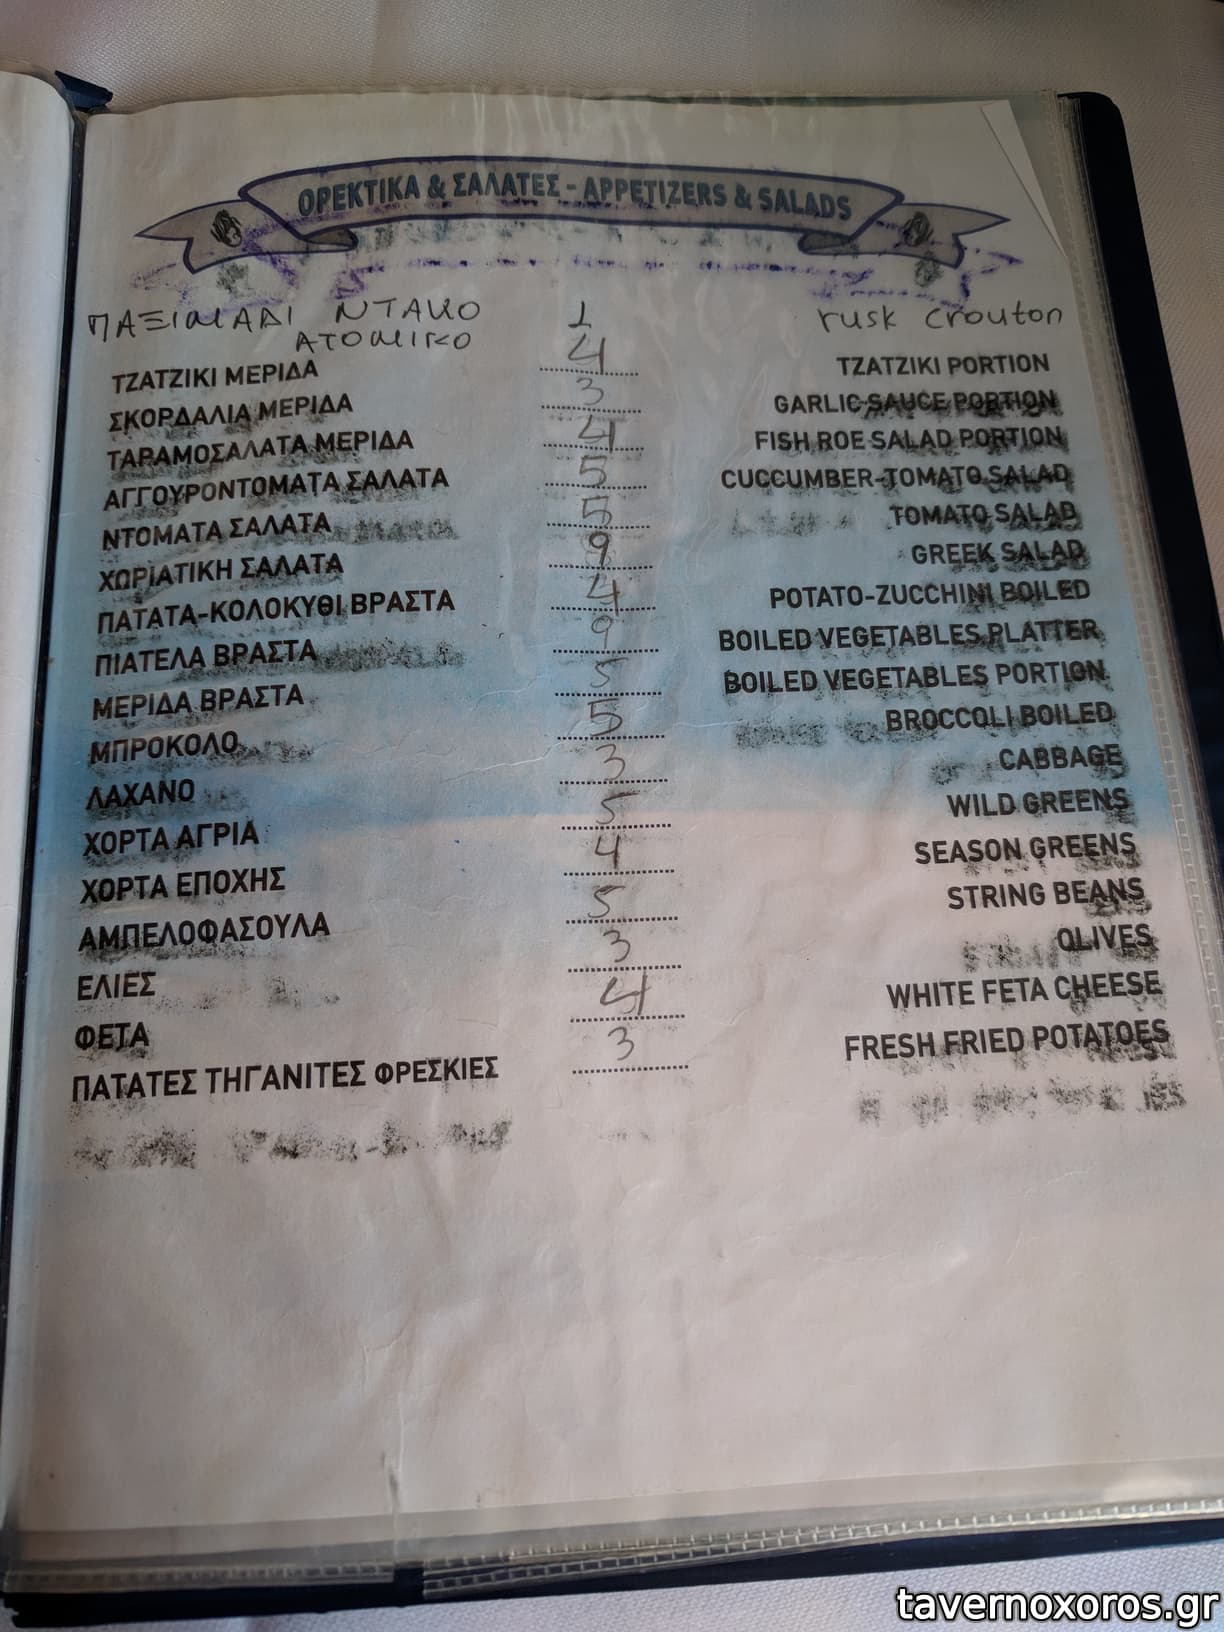 ΟΡΕΚΤΙΚΑ & ΣΑΛΑΤΕΣ - APPETIZERS & SALADS
ΠΑΞΙΜΑΔΙ ΝΤΑΚΟ 1 rusk crouton
ΑΤΟΜΙΚΟ
ΤΖΑΤΖΙΚΙ ΜΕΡΙΔΑ 4 TZATZIKI PORTION
ΣΚΟΡΔΑΛΙΑ ΜΕΡΙΔΑ 3 GARLIC SAUCE PORTION
ΤΑΡΑΜΟΣΑΛΑΤΑ ΜΕΡΙΔΑ 4 FISH ROE SALAD PORTION
ΑΓΓΟΥΡΟΝΤΟΜΑΤΑ ΣΑΛΑΤΑ 5 CUCCUMBER-TOMATO SALAD
ΝΤΟΜΑΤΑ ΣΑΛΑΤΑ 5 TOMATO SALAD
ΧΩΡΙΑΤΙΚΗ ΣΑΛΑΤΑ 9 GREEK SALAD
ΠΑΤΑΤΑ-ΚΟΛΟΚΥΘΙ ΒΡΑΣΤΑ 4 POTATO-ZUCCHINI BOILED
ΠΙΑΤΕΛΑ ΒΡΑΣΤΑ 9 BOILED VEGETABLES PLATTER
ΜΕΡΙΔΑ ΒΡΑΣΤΑ 5 BOILED VEGETABLES PORTION
ΜΠΡΟΚΟΛΟ 5 BROCCOLI BOILED
ΛΑΧΑΝΟ 3 CABBAGE
ΧΟΡΤΑ ΑΓΡΙΑ 5 WILD GREENS
ΧΟΡΤΑ ΕΠΟΧΗΣ 4 SEASON GREENS
ΑΜΠΕΛΟΦΑΣΟΥΛΑ 5 STRING BEANS
ΕΛΙΕΣ 3 OLIVES
ΦΕΤΑ 4 WHITE FETA CHEESE
ΠΑΤΑΤΕΣ ΤΗΓΑΝΙΤΕΣ ΦΡΕΣΚΙΕΣ 3 FRESH FRIED POTATOES
tavernoxoros.gr